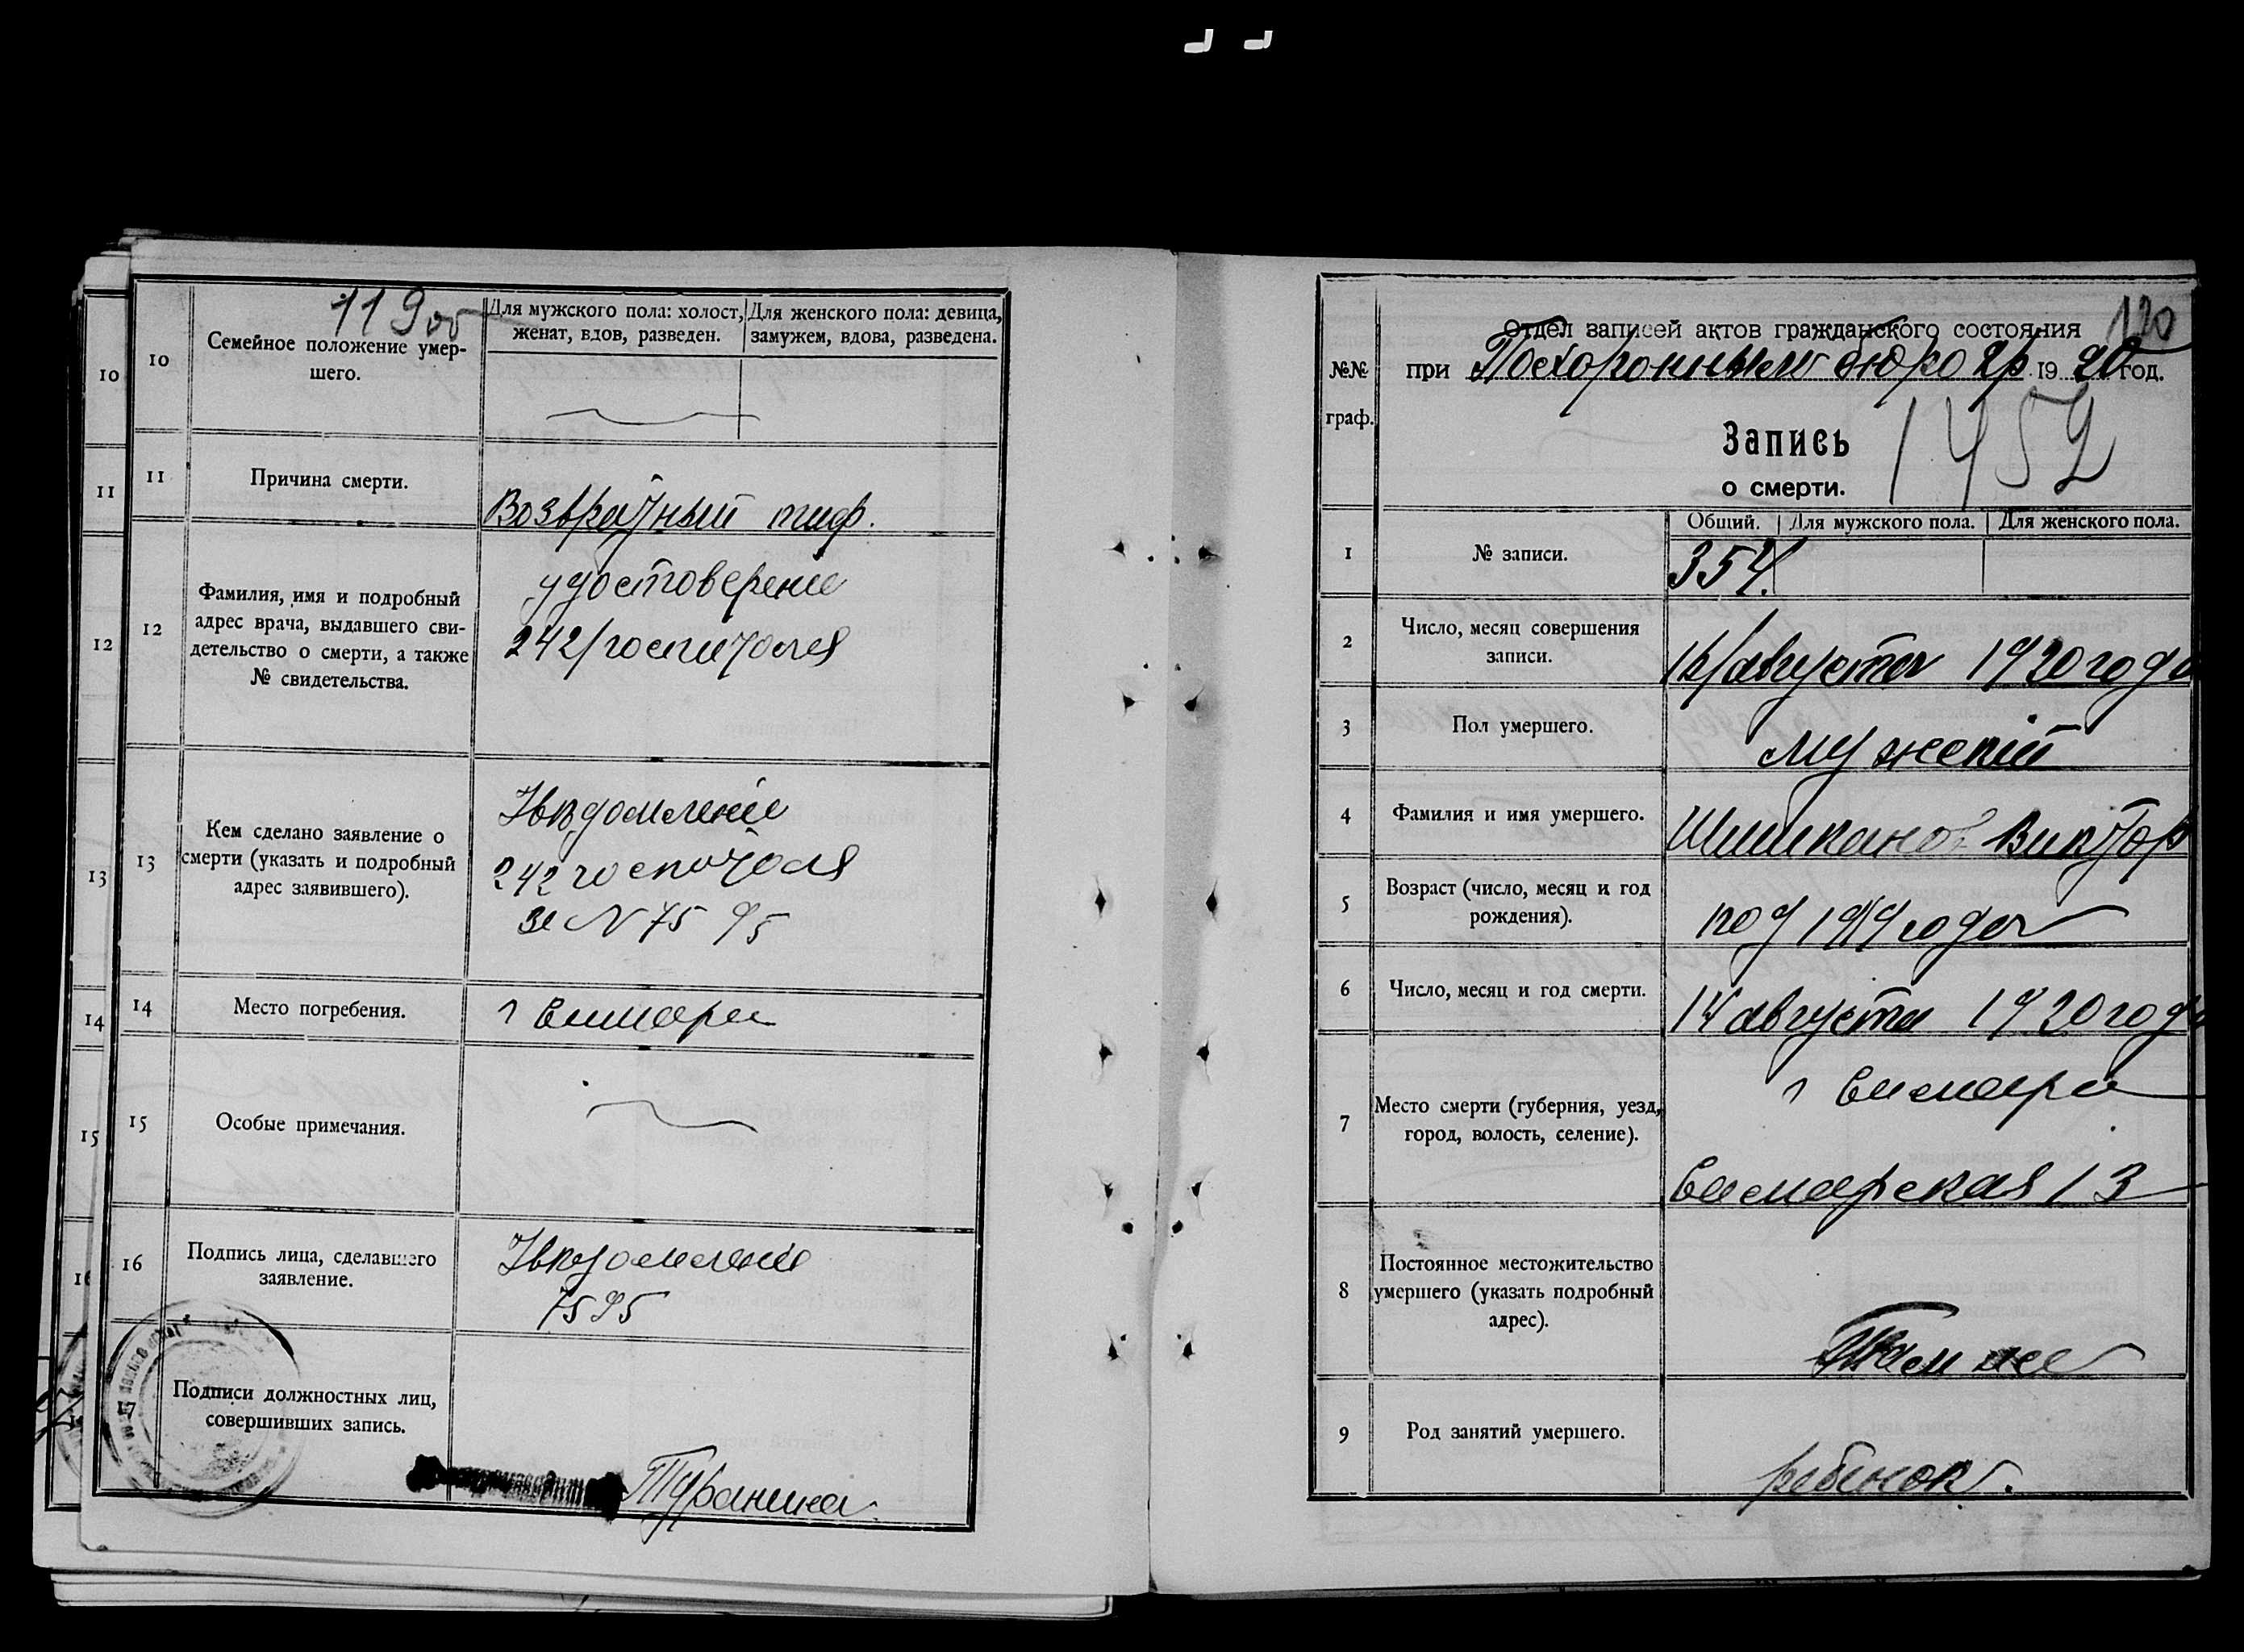 119 об
10
10
Семейное положение умер-
шего.
Для мужского пола: холост,
женат, вдов, разведен.
Для женского пола: девица,
замужем, вдова, разведена.
11
11
Причина смерти.
Возвратный тиф.
12
12
Фамилия, имя и подробный
адрес врача, выдавшего сви-
детельство о смерти, а также
№ свидетельства.
удостоверение
242/госпиталя
13
13
Кем сделано заявление о
смерти (указать и подробный
адрес заявившего).
Увѣдомление
242 госпиталя
за № 7595
14
14
Место погребения.
г Самара
15
15
Особые примечания.
16
16
Подпись лица, сделавшего
заявление.
Увѣдомление
7595
17
Подписи должностных лиц,
совершивших запись.
120
Отдел записей актов гражданского состояния
№№
граф.
при Похоронным бюро гр 1920 год.
Запись
о смерти.
1452
Общий. Для мужского пола. Для женского пола.
1
№ записи.
354.
2
Число, месяц совершения
записи.
августа 1920 года
3
Пол умершего.
мужской
4
Фамилия и имя умершего.
Шишканов Виктор
5
Возраст (число, месяц и год
рождения).
год 1919 года
6
Число, месяц и год смерти.
14 августа 1920 года
7
Место смерти (губерния, уезд,
город, волость, селение).
г Самара
Самарская 13
8
Постоянное местожительство
умершего (указать подробный
адрес).
Там же
9
Род занятий умершего.
ребенок.